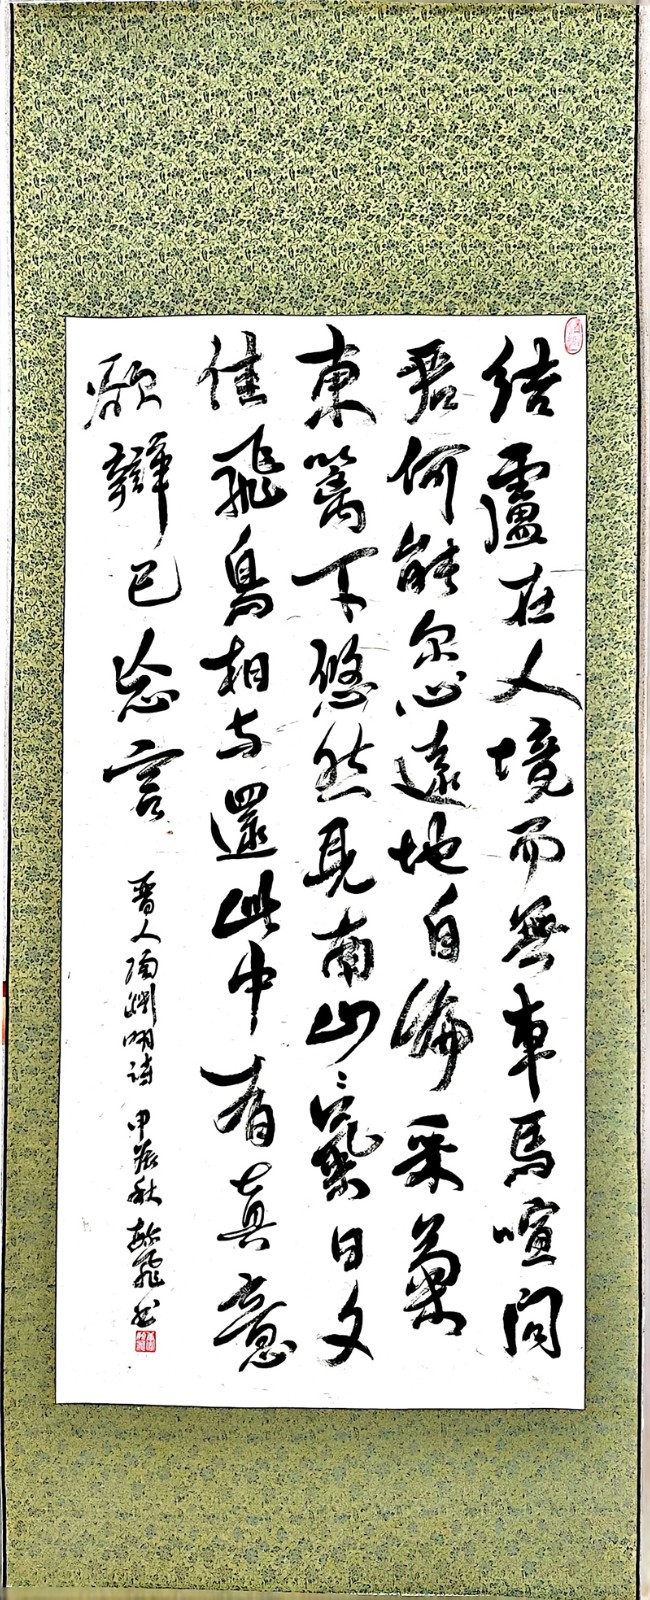 結廬在人境而無車馬喧問
君何能尔心遠地自偏采菊
東篱下悠然見南山山氣日夕
佳飛鳥相与還此中有真意
欲辯已忘言
晋人陶渊明詩 甲辰秋 飛书